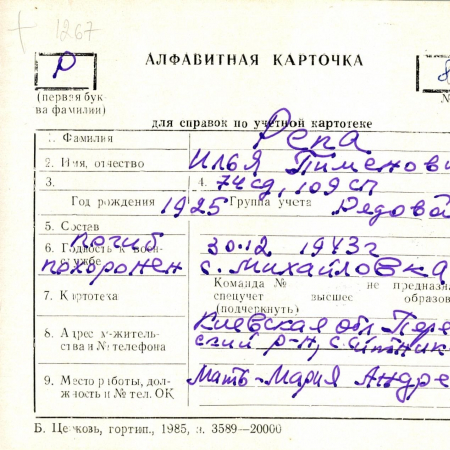 1267
АЛФАВИТНАЯ КАРТОЧКА
Р
8
(первая бук-
ва фамилии)
№
для справок по учетной картотеке
1. Фамилия Репа
2. Имя, отчество Илья Пименови
3. 4. 74 сд, 109 сп
Год рождения 1925 Группа учета Рядово
5. Состав
6. Годность к воен- погиб 30.12 1943г
службе похоронен с. Михайловка
7. Картотека
Команда № не предназ
спецучет высшее образов
(подчеркнуть)
8. Адрес м-житель-
ства и № телефона
Киевская обл Пере
ский р-н, с
9. Место работы, дол-
жность и № тел. ОК
Мать-Мария Андре
Б. Церковь, гортип., 1985, з. 3589—20000